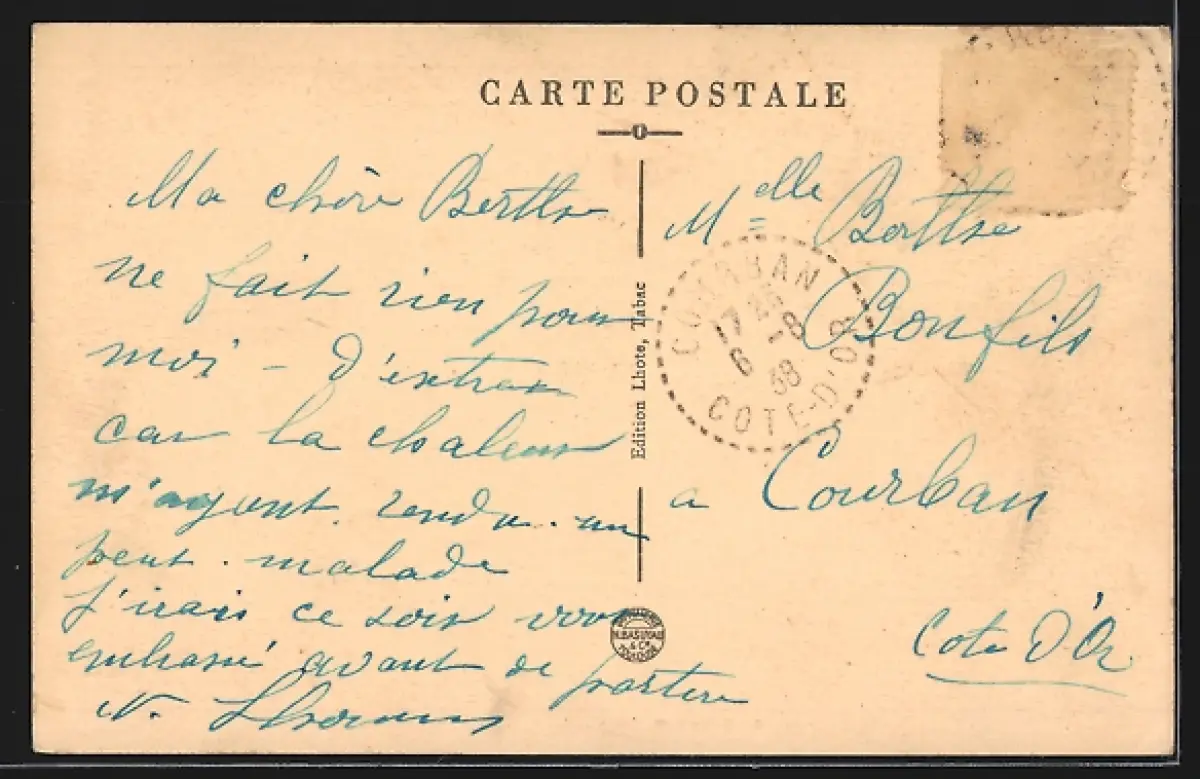 CARTE POSTALE
Ma chère Berthe
ne fait rien pour
moi - d'extra
car la chaleur
m'ayant rendu un
peut malade
j'irais ce soir vous
embrassé avant de partire
N.
Edition Lhote, Tabac
Melle Berthe
Bonfils
a Courban
Cote d'Or
COURBAN
17 25
6 -8
38
COTE-D'OR
TOULOUSE